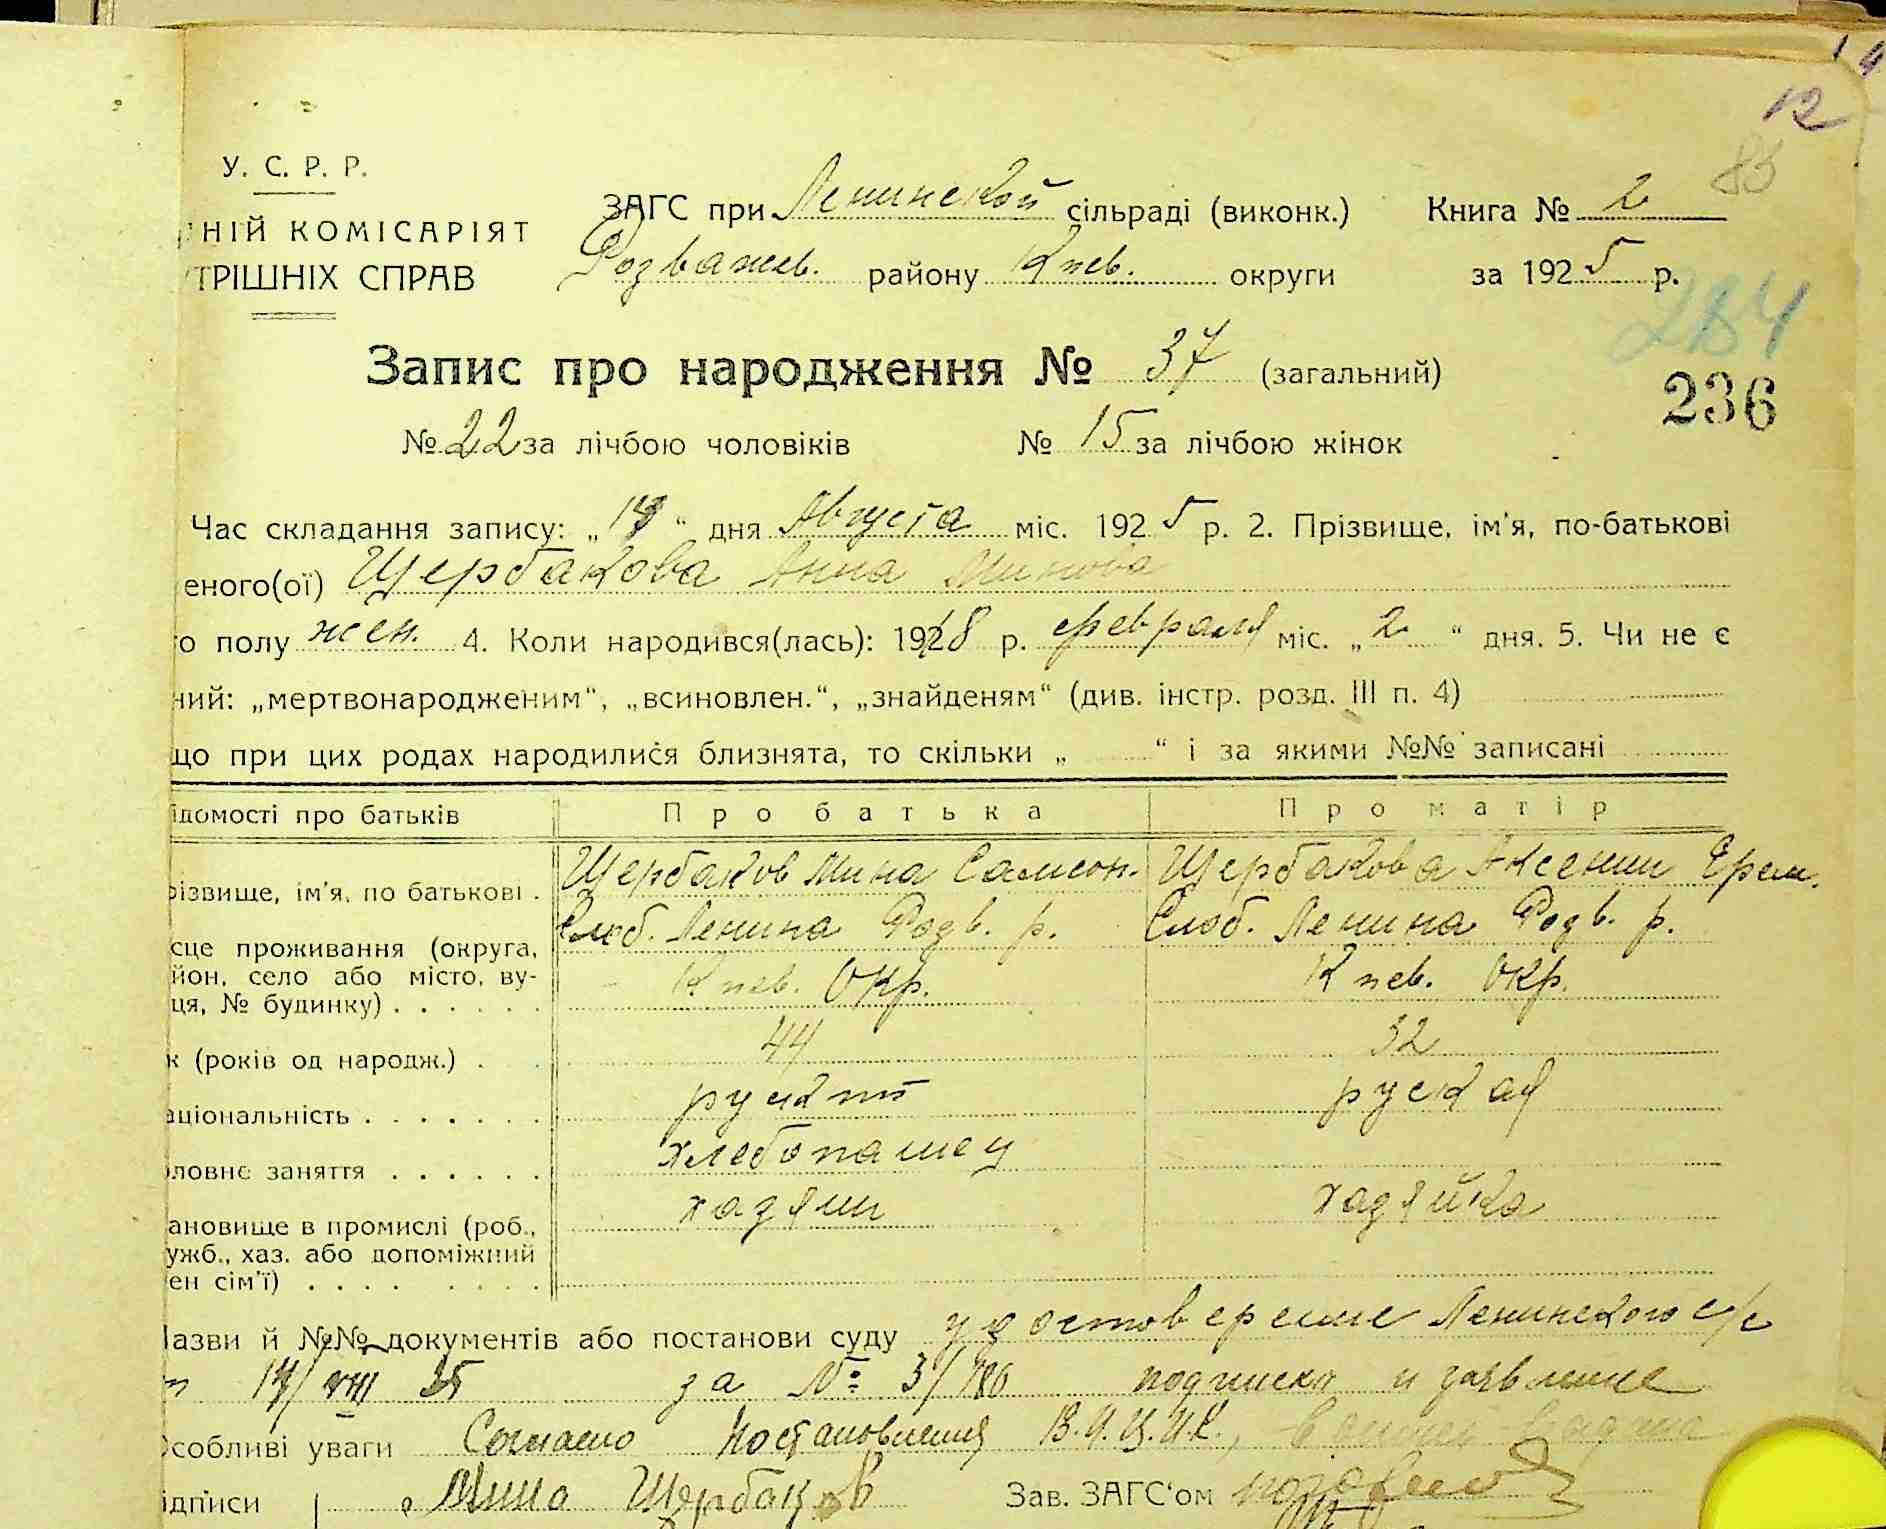 12
83
У. С. Р. Р.
НІЙ КОМІСАРІЯТ
ТРІШНІХ СПРАВ
ЗАГС при Ленинской сільраді (виконк.) Книга № 2
Розважев. району Киев. округи за 1925 р.
284
Запис про народження № 37 (загальний)
236
№ 22 за лічбою чоловіків № 15 за лічбою жінок
Час складання запису: „ “ дня Августа міс. 1925 р. 2. Прізвище, ім'я, по-батькові
еного(ої) Щербакова Анна Минова
о полу жен. 4. Коли народився(лась): 1918 р. февраля міс. „2“ дня. 5. Чи не є
ний: „мертвонародженим“, „всиновлен.“, „знайденям“ (див. інстр. розд. III п. 4)
що при цих родах народилися близнята, то скільки „ “ і за якими №№ записані
ідомості про батьків Про батька Про матір
різвище, ім'я, по батькові . Щербаков Мина Самсон. Щербакова Аксении Ерем.
Слоб. Ленина Розв. р. Слоб. Ленина Розв. р.
сце проживання (округа,
йон, село або місто, ву-
ця, № будинку) . . . . . . Киев. Окр. Киев. Окр.
к (років од народж.) . . 44 32
аціональність . . . . . . . руский руская
ловне заняття . . . . . . хлебопашец
ановище в промислі (роб., хазяин хазяйка
ужб., хаз. або допоміжний
ен сім'ї) . . . . . . . . .
Назви й №№ документів або постанови суду удостоверение Ленинского с/с
17/VIII 25 за № 3/180 подписка и заявление
Особливі уваги Согласно Постановления В.У.Ц.И.К.,
ідписи Мина Щербаков Зав. ЗАГС'ом